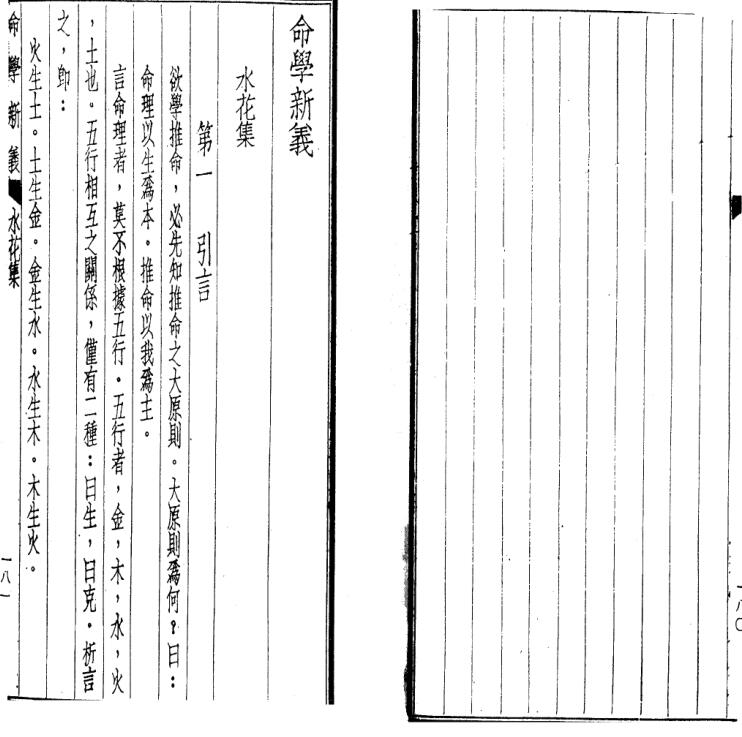 命學新義
水花集
第一　引言
欲學推命，必先知推命之大原則。大原則爲何？曰：
命理以生爲本。推命以我爲主。
言命理者，莫不根據五行。五行者，金，木，水，火
，土也。五行相互之關係，僅有二種：曰生，曰克。析言
之，即：
火生土。土生金。金生水。水生木。木生火。
命學新義　水花集
一八一
一八〇